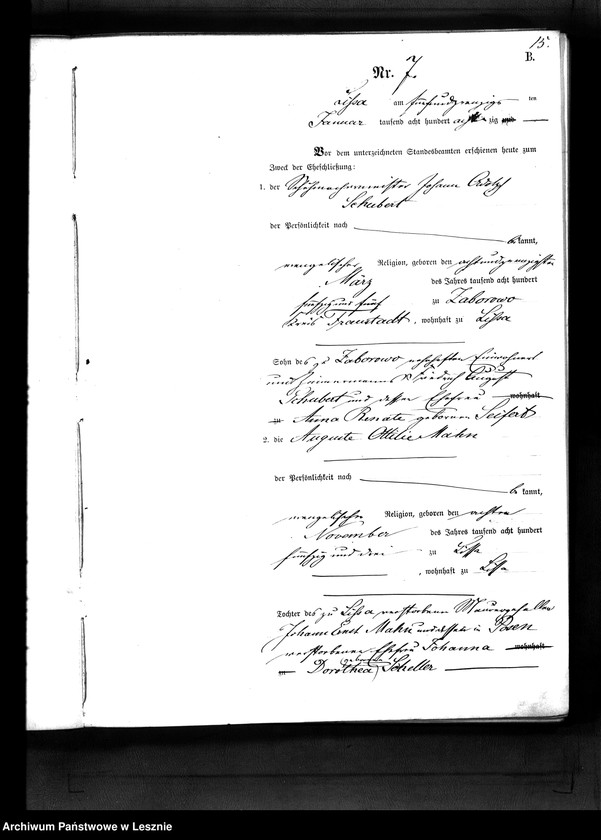 15.
B.
Nr. 7.
Lissa am fünfundzwanzigs ten
Januar tausend acht hundert acht zig und
Vor dem unterzeichneten Standesbeamten erschienen heute zum
Zweck der Eheschließung:
1. der Schuhmachermeister Johann Adolph
Schubert
der Persönlichkeit nach
be kannt,
evangelischer Religion, geboren den achtundzwanzigsten
März des Jahres tausend acht hundert
fünfzig und fünf zu Zaborowo
Kreis Fraustadt, wohnhaft zu Lissa
Sohn des zu Zaborowo wohnhaften Einwohners
und Friedrich August
Schubert und dessen Ehefrau wohnhaft
zu Anna Renate geborenen Seifert
2. die Auguste Ottilie Mahn
der Persönlichkeit nach
be kannt,
evangelischer Religion, geboren den achten
November des Jahres tausend acht hundert
fünfzig und drei zu Lissa
, wohnhaft zu Lissa
Tochter des zu Lissa verstorbenen Maurergesellen
Johann Ernst Mahn und dessen in Posen
verstorbenen Ehefrau Johanna wohnhaft
zu Dorothea geborenen Scheller
Archiwum Państwowe w Lesznie